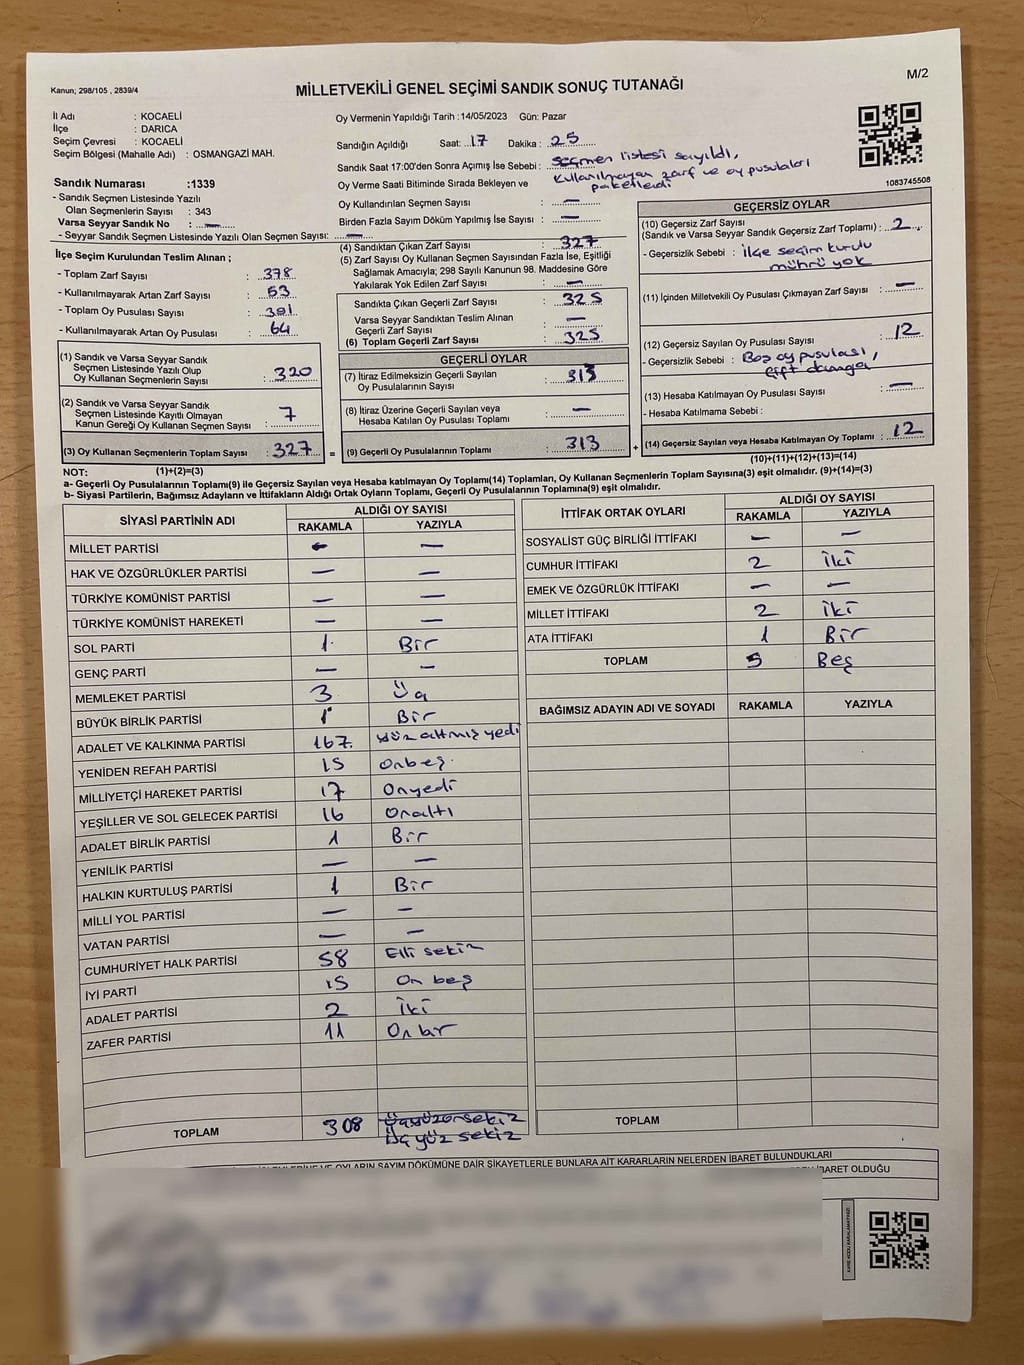 M/2
Kanun; 298/105 , 2839/4
MİLLETVEKİLİ GENEL SEÇİMİ SANDIK SONUÇ TUTANAĞI
İl Adı : KOCAELİ
İlçe : DARICA
Seçim Çevresi : KOCAELİ
Seçim Bölgesi (Mahalle Adı) : OSMANGAZİ MAH.
Sandık Numarası :1339
- Sandık Seçmen Listesinde Yazılı
Olan Seçmenlerin Sayısı : 343
Varsa Seyyar Sandık No : —
- Seyyar Sandık Seçmen Listesinde Yazılı Olan Seçmen Sayısı: —
Oy Vermenin Yapıldığı Tarih : 14/05/2023 Gün: Pazar
Sandığın Açıldığı Saat: 17 Dakika : 25
Sandık Saat 17:00'den Sonra Açımış İse Sebebi : Seçmen listesi sayıldı,
kullanılmayan zarf ve oy pusulaları
paketlendi
Oy Verme Saati Bitiminde Sırada Bekleyen ve
Oy Kullandırılan Seçmen Sayısı : —
Birden Fazla Sayım Döküm Yapılmış İse Sayısı : —
1083745508
İlçe Seçim Kurulundan Teslim Alınan ;
- Toplam Zarf Sayısı : 378
- Kullanılmayarak Artan Zarf Sayısı : 53
- Toplam Oy Pusulası Sayısı :
- Kullanılmayarak Artan Oy Pusulası : 64
(1) Sandık ve Varsa Seyyar Sandık
Seçmen Listesinde Yazılı Olup
Oy Kullanan Seçmenlerin Sayısı : 320
(2) Sandık ve Varsa Seyyar Sandık
Seçmen Listesinde Kayıtlı Olmayan
Kanun Gereği Oy Kullanan Seçmen Sayısı : 7
(3) Oy Kullanan Seçmenlerin Toplam Sayısı : 327 =
(4) Sandıktan Çıkan Zarf Sayısı : 327
(5) Zarf Sayısı Oy Kullanan Seçmen Sayısından Fazla İse, Eşitliği
Sağlamak Amacıyla; 298 Sayılı Kanunun 98. Maddesine Göre
Yakılarak Yok Edilen Zarf Sayısı : —
Sandıkta Çıkan Geçerli Zarf Sayısı : 325
Varsa Seyyar Sandıktan Teslim Alınan
Geçerli Zarf Sayısı : —
(6) Toplam Geçerli Zarf Sayısı : 325
GEÇERLİ OYLAR
(7) İtiraz Edilmeksizin Geçerli Sayılan
Oy Pusulalarının Sayısı : 313
(8) İtiraz Üzerine Geçerli Sayılan veya
Hesaba Katılan Oy Pusulası Toplamı : —
(9) Geçerli Oy Pusulalarının Toplamı : 313 +
GEÇERSİZ OYLAR
(10) Geçersiz Zarf Sayısı
(Sandık ve Varsa Seyyar Sandık Geçersiz Zarf Toplamı) : 2
- Geçersizlik Sebebi : ilçe seçim kurulu
mührü yok
(11) İçinden Milletvekili Oy Pusulası Çıkmayan Zarf Sayısı : —
(12) Geçersiz Sayılan Oy Pusulası Sayısı : 12
- Geçersizlik Sebebi : Boş oy pusulası,
çift damga
(13) Hesaba Katılmayan Oy Pusulası Sayısı : —
- Hesaba Katılmama Sebebi :
(14) Geçersiz Sayılan veya Hesaba Katılmayan Oy Toplamı : 12
(10)+(11)+(12)+(13)=(14)
NOT: (1)+(2)=(3)
a- Geçerli Oy Pusulalarının Toplamı(9) ile Geçersiz Sayılan veya Hesaba katılmayan Oy Toplamı(14) Toplamları, Oy Kullanan Seçmenlerin Toplam Sayısına(3) eşit olmalıdır. (9)+(14)=(3)
b- Siyasi Partilerin, Bağımsız Adayların ve İttifakların Aldığı Ortak Oyların Toplamı, Geçerli Oy Pusulalarının Toplamına(9) eşit olmalıdır.
SİYASİ PARTİNİN ADI ALDIĞI OY SAYISI
RAKAMLA YAZIYLA
MİLLET PARTİSİ — —
HAK VE ÖZGÜRLÜKLER PARTİSİ — —
TÜRKİYE KOMÜNİST PARTİSİ — —
TÜRKİYE KOMÜNİST HAREKETİ — —
SOL PARTİ 1 Bir
GENÇ PARTİ — —
MEMLEKET PARTİSİ 3 Üç
BÜYÜK BİRLİK PARTİSİ 1 Bir
ADALET VE KALKINMA PARTİSİ 167 yüz altmış yedi
YENİDEN REFAH PARTİSİ 15 onbeş
MİLLİYETÇİ HAREKET PARTİSİ 17 Onyedi
YEŞİLLER VE SOL GELECEK PARTİSİ 16 Onaltı
ADALET BİRLİK PARTİSİ 1 Bir
YENİLİK PARTİSİ — —
HALKIN KURTULUŞ PARTİSİ 1 Bir
MİLLİ YOL PARTİSİ — —
VATAN PARTİSİ — —
CUMHURİYET HALK PARTİSİ 58 Elli sekiz
İYİ PARTİ 15 On beş
ADALET PARTİSİ 2 İki
ZAFER PARTİSİ 11 Onbir
TOPLAM 308 Üçyüzonsekiz
Üç yüz sekiz
İTTİFAK ORTAK OYLARI ALDIĞI OY SAYISI
RAKAMLA YAZIYLA
SOSYALİST GÜÇ BİRLİĞİ İTTİFAKI — —
CUMHUR İTTİFAKI 2 İki
EMEK VE ÖZGÜRLÜK İTTİFAKI — —
MİLLET İTTİFAKI 2 İki
ATA İTTİFAKI 1 Bir
TOPLAM 5 Beş
BAĞIMSIZ ADAYIN ADI VE SOYADI RAKAMLA YAZIYLA
TOPLAM
OYLARIN SAYIM DÖKÜMÜNE DAİR ŞİKAYETLERLE BUNLARA AİT KARARLARIN NELERDEN İBARET BULUNDUKLARI
İBARET OLDUĞU